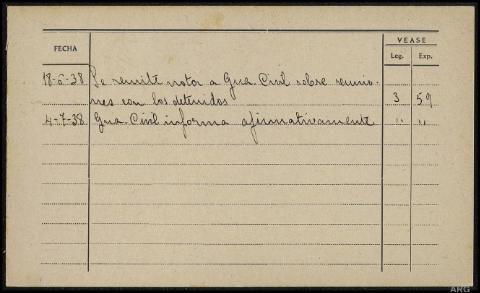 VEASE
FECHA Leg. Exp.
18-6-38 Se remite nota a Gua. Civil sobre reunio-
nes con los detenidos 3 59
4-7-38 Gua. Civil informa afirmativamente " "
ARG